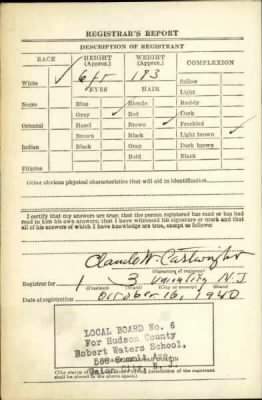 REGISTRAR'S REPORT
DESCRIPTION OF REGISTRANT
RACE HEIGHT (Approx.) WEIGHT (Approx.) COMPLEXION
White ✓ 6 ft 193 Sallow
EYES HAIR Light
Negro Blue Blonde Ruddy
Gray ✓ Red Dark
Oriental Hazel Brown ✓ Freckled
Brown Black Light brown ✓
Indian Black Gray Dark brown
Bald Black
Filipino
Other obvious physical characteristics that will aid in identification
I certify that my answers are true; that the person registered has read or has had
read to him his own answers; that I have witnessed his signature or mark and that
all of his answers of which I have knowledge are true, except as follows:
Claude W. Cartwright
(Signature of registrar)
Registrar for 1 3 Union City N.J.
(Precinct) (Ward) (City or county) (State)
Date of registration October 16, 1940
LOCAL BOARD No. 6
For Hudson County
Robert Waters School,
Summit Ave.
Union City, N. J.
(The stamp of
of the registrant
shall be placed in the above space.)